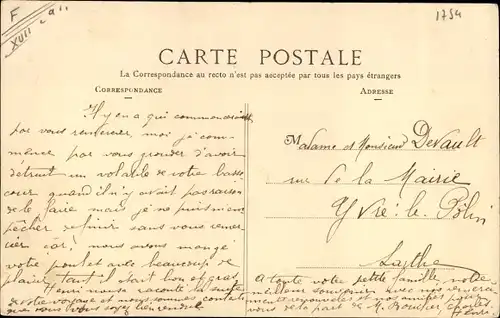 F
XVII "a"
1754
CARTE POSTALE
La Correspondance au recto n'est pas acceptée par tous les pays étrangers
CORRESPONDANCE
ADRESSE
Il y en a qui commencerait
par vous remercier, moi je com-
mence par vous gronder d'avoir
détruit un volatile de votre basse
cour quand il n'y avait pas raison
de le faire mais je ne puis m'em
pêcher de finir sans vous remer
cier car, nous avons mangé
votre poulet avec beaucoup de
plaisir tant il était bon et gras,
Henri nous a raconté la suite
de votre voyage et nous sommes contents
que vous vous soyez bien rendue
Madame et Monsieur Devault
rue de la Mairie
Yvré-le-Pôlin
Sarthe
A toute votre petite famille, notre
meilleur souvenir avec nos remerci
ments renouvelés et nos amitiés pour
vous de la part de M. Boucher
Henri